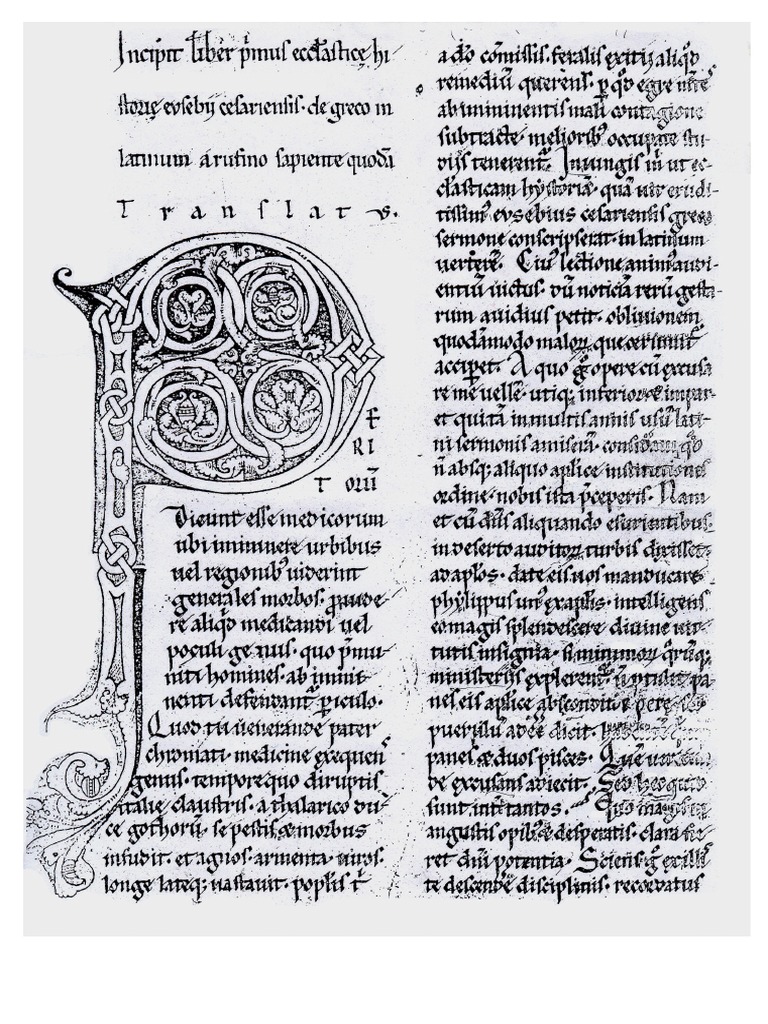 Incipit liber p̄mus eccl̄astice hi
storię eusebij cesariensis· de greco in
latinum a rufino sapiente quodā
Translatus.
PE
RI
TORŪ
Dicunt esse medicorum
ubi imminere urbibus
uel regionibꝰ uiderint
generales morbos· ꝓuide
re aliqd̄ medicandi uel
poculi genus· quo p̄mu
niti homines· ab immi
nenti defendant̄ ꝑiculo.
Quod tu uenerande pater
chromati· medicinę exequens
genus· tempore quo diruptis
italię claustris· a thalarico du
ce gothorū· se pestis & morbus
infudit· et agros· armenta· uiros·
longe lateq; uastauit· popl̄is t̄
a dō com̄issis· feralis exitij aliqd̄
remediū querens· ꝑ qd̄ egre mtēs
ab imminentis mali contagione
subtracte· melioribꝰ occupate stu
dijs tenerent̄· Iniungis m̄ ut ec
cl̄asticam hystoriā· quā uir erudi
tissimꝰ eusebius cesariensis greco
sermone conscripserat· in latinum
uerterē. Cuiꝰ lectione animꝰ audi
entiū uictus· dū noticiā rerū gesta
rum auidius petit· obliuionem
quodāmodo malorꝝ que
acciperet. A quo g̊ opere cū excusa
re me uelle· utiq; inferior & impar
et qui tā in multis annis usū lati
ni sermonis amiserā· considaui qd̄
n̄ absq; aliquo aplice institutionis
ordine· nobis ista p̄ceperis. Nam
et cū dn̄s aliquando esurientibus
in deserto auditorꝝ turbis dixisset
ad apl̄os· date eis uos manducare
phylippus unꝰ ex apl̄is· intelligens
eo magis splendescere diuine uir
tutis insignia· si minimorꝝ q̄rūq;
ministeriis explerent̄· n̄ ptulit pa
nes
puerulū adeē dicit·
panes & duos pisces. Que
be excusans adiecit. Sed hec quid
sunt int̄ tantos· Quo magis in
angustis opibꝰ & desperatis· clara fie
ret diuī potentia· Sciens g̊ ex illiꝰ
te descendē disciplinis· recordatus